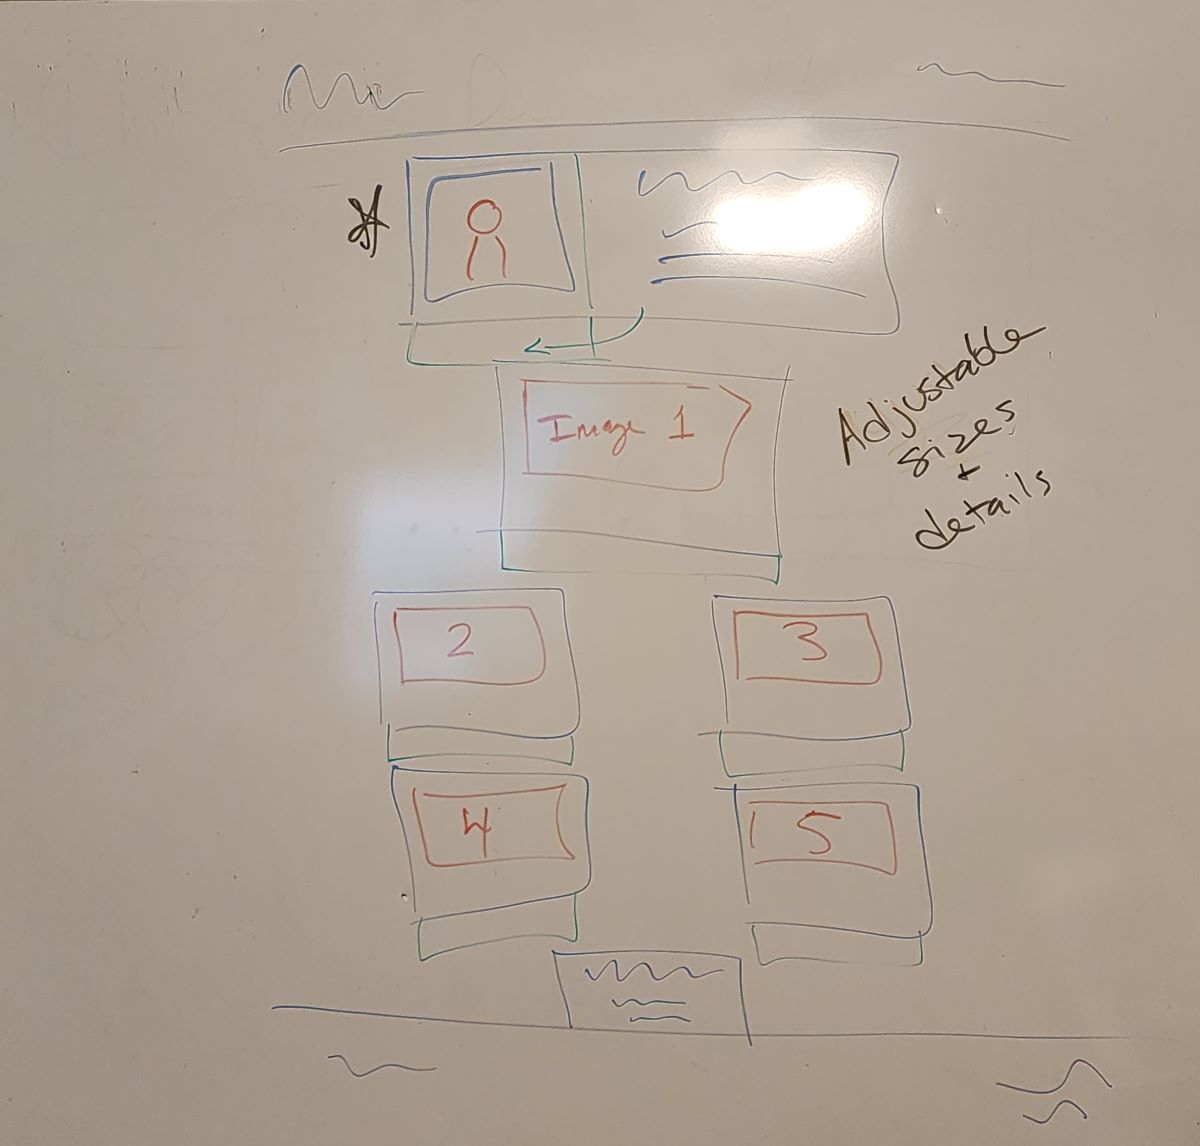 Image 1
Adjustable
sizes
+
details
2
3
4
5